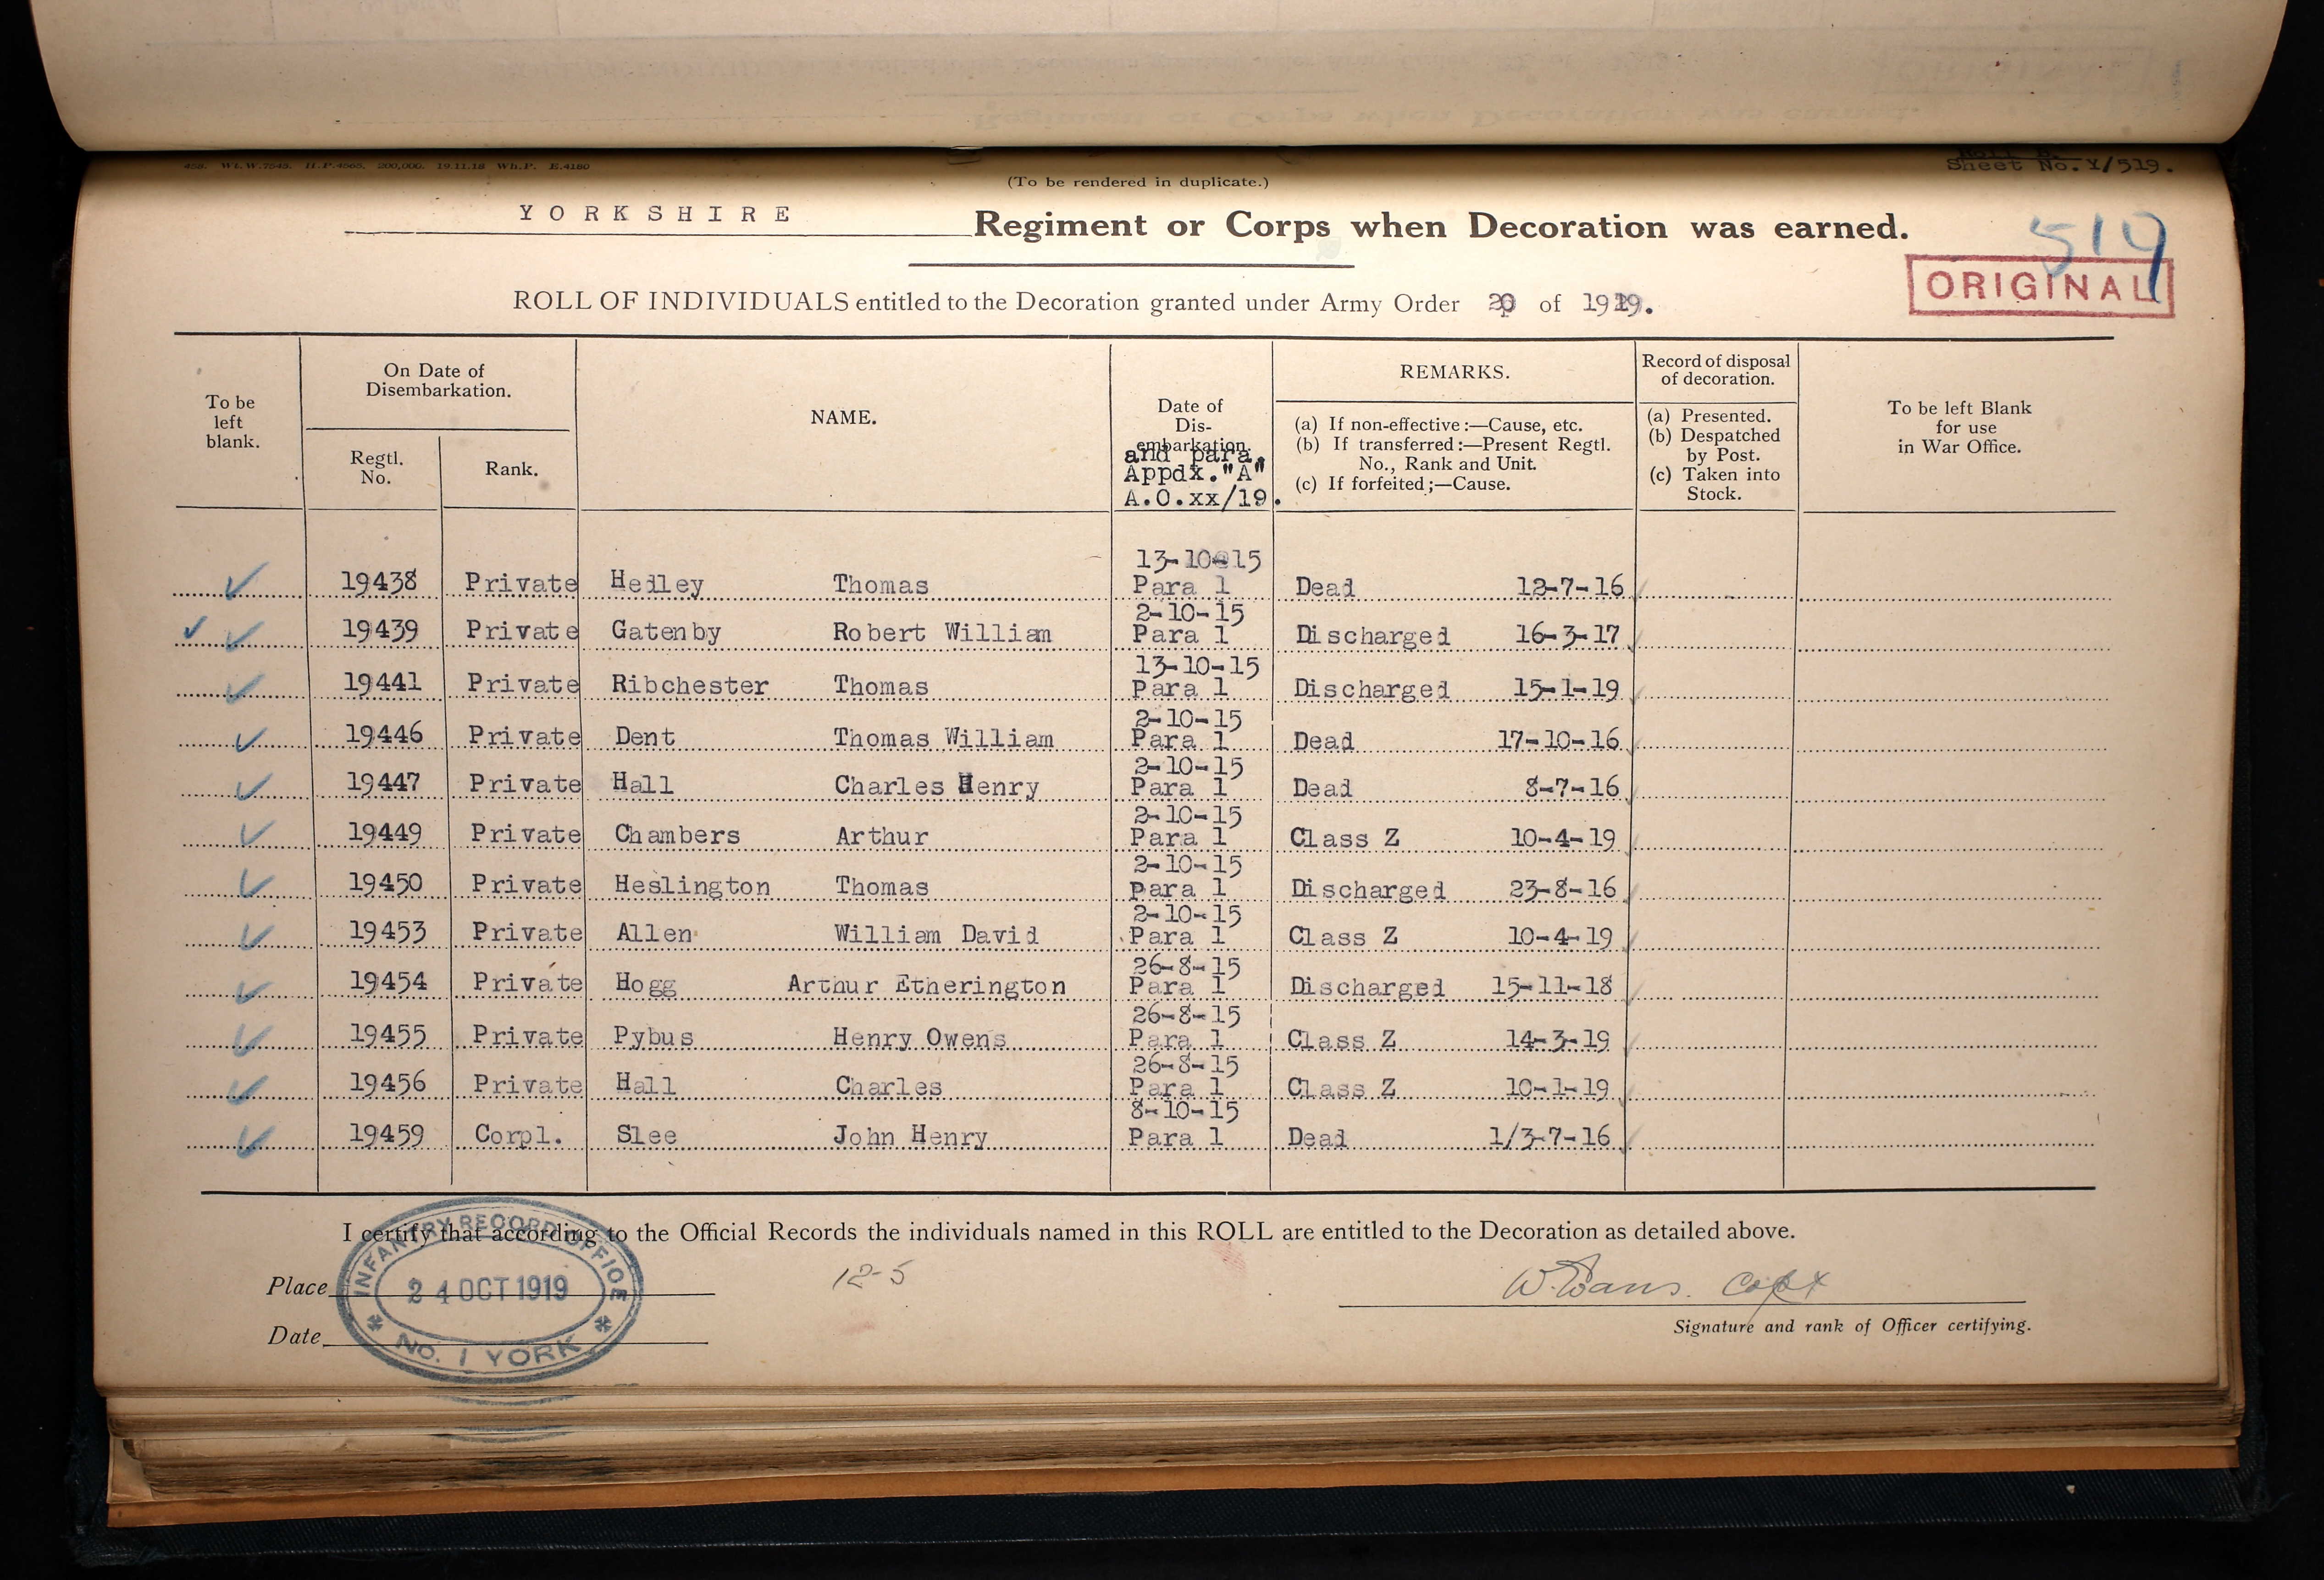 458. Wt.W.7545. H.P.4665. 200,000. 19.11.18 Wh.P. E.4180
Sheet No. Y/519.
(To be rendered in duplicate.)
YORKSHIRE Regiment or Corps when Decoration was earned.
519
ORIGINAL
ROLL OF INDIVIDUALS entitled to the Decoration granted under Army Order 20 of 1919.
To be left blank.
On Date of Disembarkation.
Regtl. No.
Rank.
NAME.
Date of Dis-
embarkation
and para.
Appdx."A"
A.O.xx/19.
REMARKS.
(a) If non-effective:—Cause, etc.
(b) If transferred:—Present Regtl.
No., Rank and Unit.
(c) If forfeited;—Cause.
Record of disposal of decoration.
(a) Presented.
(b) Despatched by Post.
(c) Taken into Stock.
To be left Blank for use in War Office.
13-10-15
19438 Private Hedley Thomas Para 1 Dead 12-7-16
2-10-15
19439 Private Gatenby Robert William Para 1 Discharged 16-3-17
13-10-15
19441 Private Ribchester Thomas Para 1 Discharged 15-1-19
2-10-15
19446 Private Dent Thomas William Para 1 Dead 17-10-16
2-10-15
19447 Private Hall Charles Henry Para 1 Dead 8-7-16
2-10-15
19449 Private Chambers Arthur Para 1 Class Z 10-4-19
2-10-15
19450 Private Heslington Thomas Para 1 Discharged 23-8-16
2-10-15
19453 Private Allen William David Para 1 Class Z 10-4-19
26-8-15
19454 Private Hogg Arthur Etherington Para 1 Discharged 15-11-18
26-8-15
19455 Private Pybus Henry Owens Para 1 Class Z 14-3-19
26-8-15
19456 Private Hall Charles Para 1 Class Z 10-1-19
8-10-15
19459 Corpl. Slee John Henry Para 1 Dead 1/3-7-16
I certify that according to the Official Records the individuals named in this ROLL are entitled to the Decoration as detailed above.
INFANTRY RECORD OFFICE
24 OCT 1919
NO. 1 YORK
12-5
Place
Date
W. Evans. Capt
Signature and rank of Officer certifying.